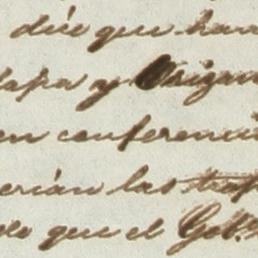 dice que han
lapa y Origan
en conferenci
erian las trop
lo que el Gob.